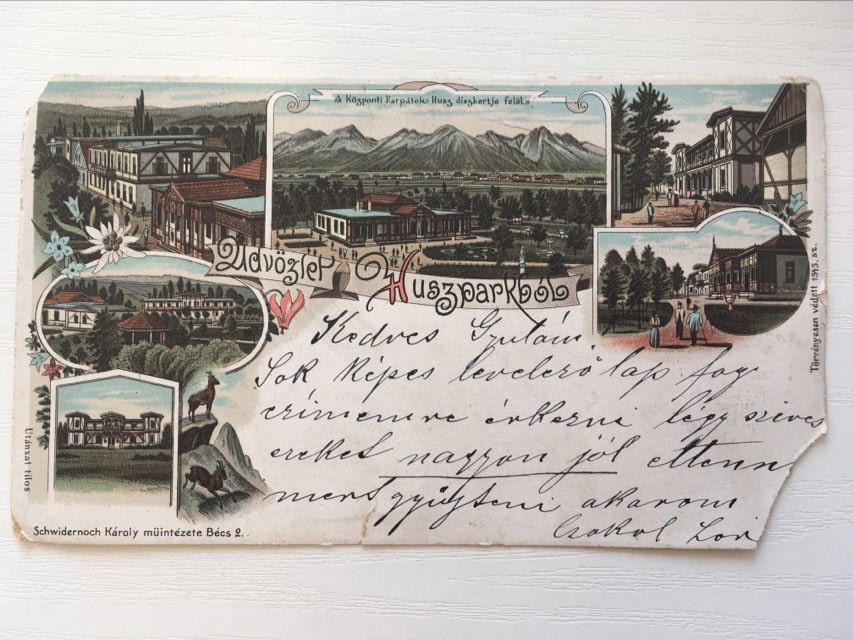 A Központi Kárpátok Husz diszkertje felöl.
Üdvözlet Huszparkból
Kedves
Sok képes levelező lap fog
czimemre érkezni légy szives
ezeket nagyon jól eltenn
mert gyüjteni akarom
Csokol
Törvényesen védett 1545. sz.
Utánzat tilos
Schwidernoch Károly müintézete Bécs 2.